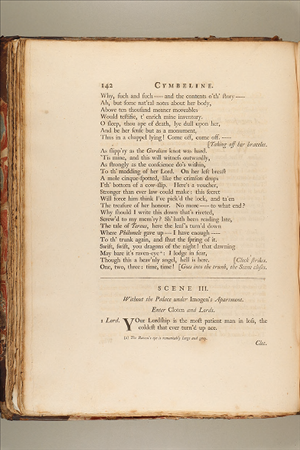 142 CYMBELINE.
Why, such and such — and the contents o'th' story —
Ah, but some nat'ral notes about her body,
Above ten thousand meaner moveables
Would testifie, t' enrich mine inventory.
O sleep, thou ape of death, lye dull upon her,
And be her sense but as a monument,
Thus in a chappel lying! Come off, come off. —
[Taking off her bracelet.
As slipp'ry as the Gordian knot was hard.
'Tis mine, and this will witness outwardly,
As strongly as the conscience do's within,
To th' madding of her Lord. On her left breast
A mole cinque-spotted, like the crimson drops
I'th' bottom of a cow-slip. Here's a voucher,
Stronger than ever law could make: this secret
Will force him think I've pick'd the lock, and ta'en
The treasure of her honour. No more — to what end?
Why should I write this down that's riveted,
Screw'd to my mem'ry? Sh' hath been reading late,
The tale of Tereus, here the leaf's turn'd down
Where Philomele gave up — I have enough —
To th' trunk again, and shut the spring of it.
Swift, swift, you dragons of the night! that dawning
May bare it's raven-eye: I lodge in fear,
Though this a heav'nly angel, hell is here. [Clock strikes.
One, two, three: time, time! [Goes into the trunk, the Scene closes.
SCENE III.
Without the Palace under Imogen's Apartment.
Enter Cloten and Lords.
1 Lord. YOur Lordship is the most patient man in loss, the
coldest that ever turn'd up ace.
(a) The Raven's eye is remarkably large and grey.
Clot.